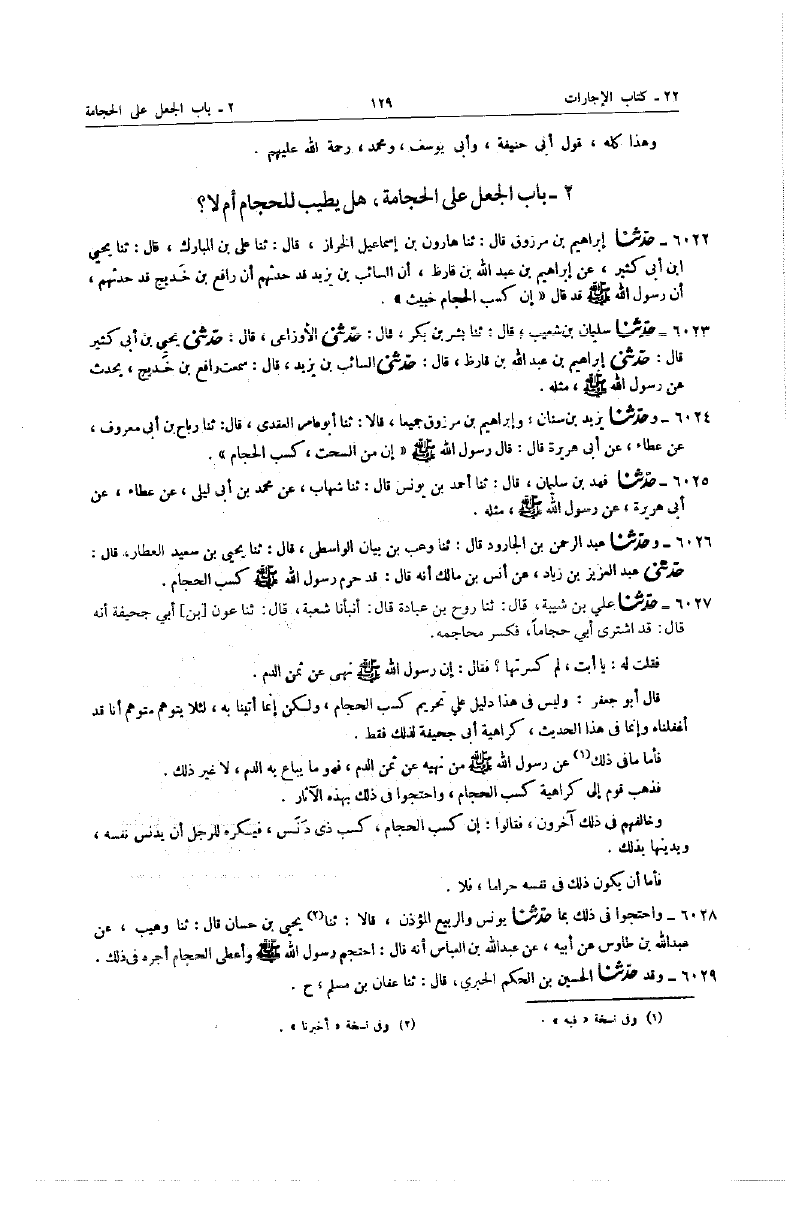 ٢٢ـ كتاب الإجارات ١٢٩ ٢ ـ باب الجعل على الحجامة
وهذا كله ، قول أبى حنيفة ، وأبى يوسف ، ومحمد ، رحمة الله عليهم .
٢ ـ باب الجعل على الحجامة، هل يطيب للحجام أم لا؟
٦٠٢٢ ـ حدّثنا إبراهيم بن مرزوق قال : ثنا هارون بن إسماعيل الخراز ، قال : ثنا على بن المبارك ، قال : ثنا يحيى
ابن أبى كثير ، عن إبراهيم بن عبد الله بن قارظ ، أن السائب بن يزيد قد حدثهم أن رافع بن خَديج قد حدثهم ،
أن رسول الله ﷺ قد قال « إن كسب الحجام خبيث » .
٦٠٢٣ ـ حدّثنا سليمان بن شعيب ، قال : ثنا بشر بن بكر ، قال : حدّثنى الأوزاعى ، قال : حدّثنى يحيى بن أبى كثير
قال : حدّثنى إبراهيم بن عبد الله بن قارظ ، قال : حدّثنى السائب بن يزيد ، قال : سمعت رافع بن خَديج ، يحدث
عن رسول الله ﷺ ، مثله .
٦٠٢٤ ـ وحدّثنا يزيد بن سنان ، وإبراهيم بن مرزوق جميعا ، قالا : ثنا أبو عامر العقدى ، قال: ثنا رباح بن أبى معروف ،
عن عطاء ، عن أبى هريرة قال : قال رسول الله ﷺ « إن من السحت ، كسب الحجام » .
٦٠٢٥ ـ حدّثنا فهد بن سليمان ، قال : ثنا أحمد بن يونس قال : ثنا شهاب ، عن محمد بن أبى ليلى ، عن عطاء ، عن
أبى هريرة ، عن رسول الله ﷺ ، مثله .
٦٠٢٦ ـ وحدّثنا عبد الرحمن بن الجارود قال : ثنا وهب بن بيان الواسطى ، قال : ثنا يحيى بن سعيد العطار، قال :
حدّثنى عبد العزيز بن زياد ، عن أنس بن مالك أنه قال : قد حرم رسول الله ﷺ كسب الحجام .
٦٠٢٧ ـ حدّثنا علي بن شيبة، قال: ثنا روح بن عبادة قال: أنبأنا شعبة، قال: ثنا عون [بن] أبي جحيفة أنه
قال: قد اشترى أبي حجاماً، فكسر محاجمه.
فقلت له : يا أبت ، لم كسرتها ؟ فقال : إن رسول الله ﷺ نهى عن ثمن الدم .
قال أبو جعفر : وليس فى هذا دليل على تحريم كسب الحجام ، ولكن إنما أتينا به ، لئلا يتوهم متوهم أنا قد
أغفلناه وإنما فى هذا الحديث ، كراهية أبى جحيفة لذلك فقط .
فأما ما فى ذلك(١) عن رسول الله ﷺ من نهيه عن ثمن الدم ، فهو ما يباع به الدم ، لا غير ذلك .
فذهب قوم إلى كراهية كسب الحجام ، واحتجوا فى ذلك بهذه الآثار .
وخالفهم فى ذلك آخرون ، فقالوا : إن كسب الحجام ، كسب ذى دَنَس ، فيكره للرجل أن يدنس نفسه ،
ويدينها بذلك .
فأما أن يكون ذلك فى نفسه حراما ، فلا .
٦٠٢٨ ـ واحتجوا فى ذلك بما حدّثنا يونس والربيع المؤذن ، قالا : ثنا(٢) يحيى بن حسان قال : ثنا وهيب ، عن
عبدالله بن طاوس عن أبيه ، عن عبدالله بن العباس أنه قال : احتجم رسول الله ﷺ وأعطى الحجام أجره فى ذلك .
٦٠٢٩ ـ وقد حدّثنا الحسين بن الحكم الحبري، قال : ثنا عفان بن مسلم ، ح .
(١) وفى نسخة « فيه » . (٢) وفى نسخة « أخبرنا » .